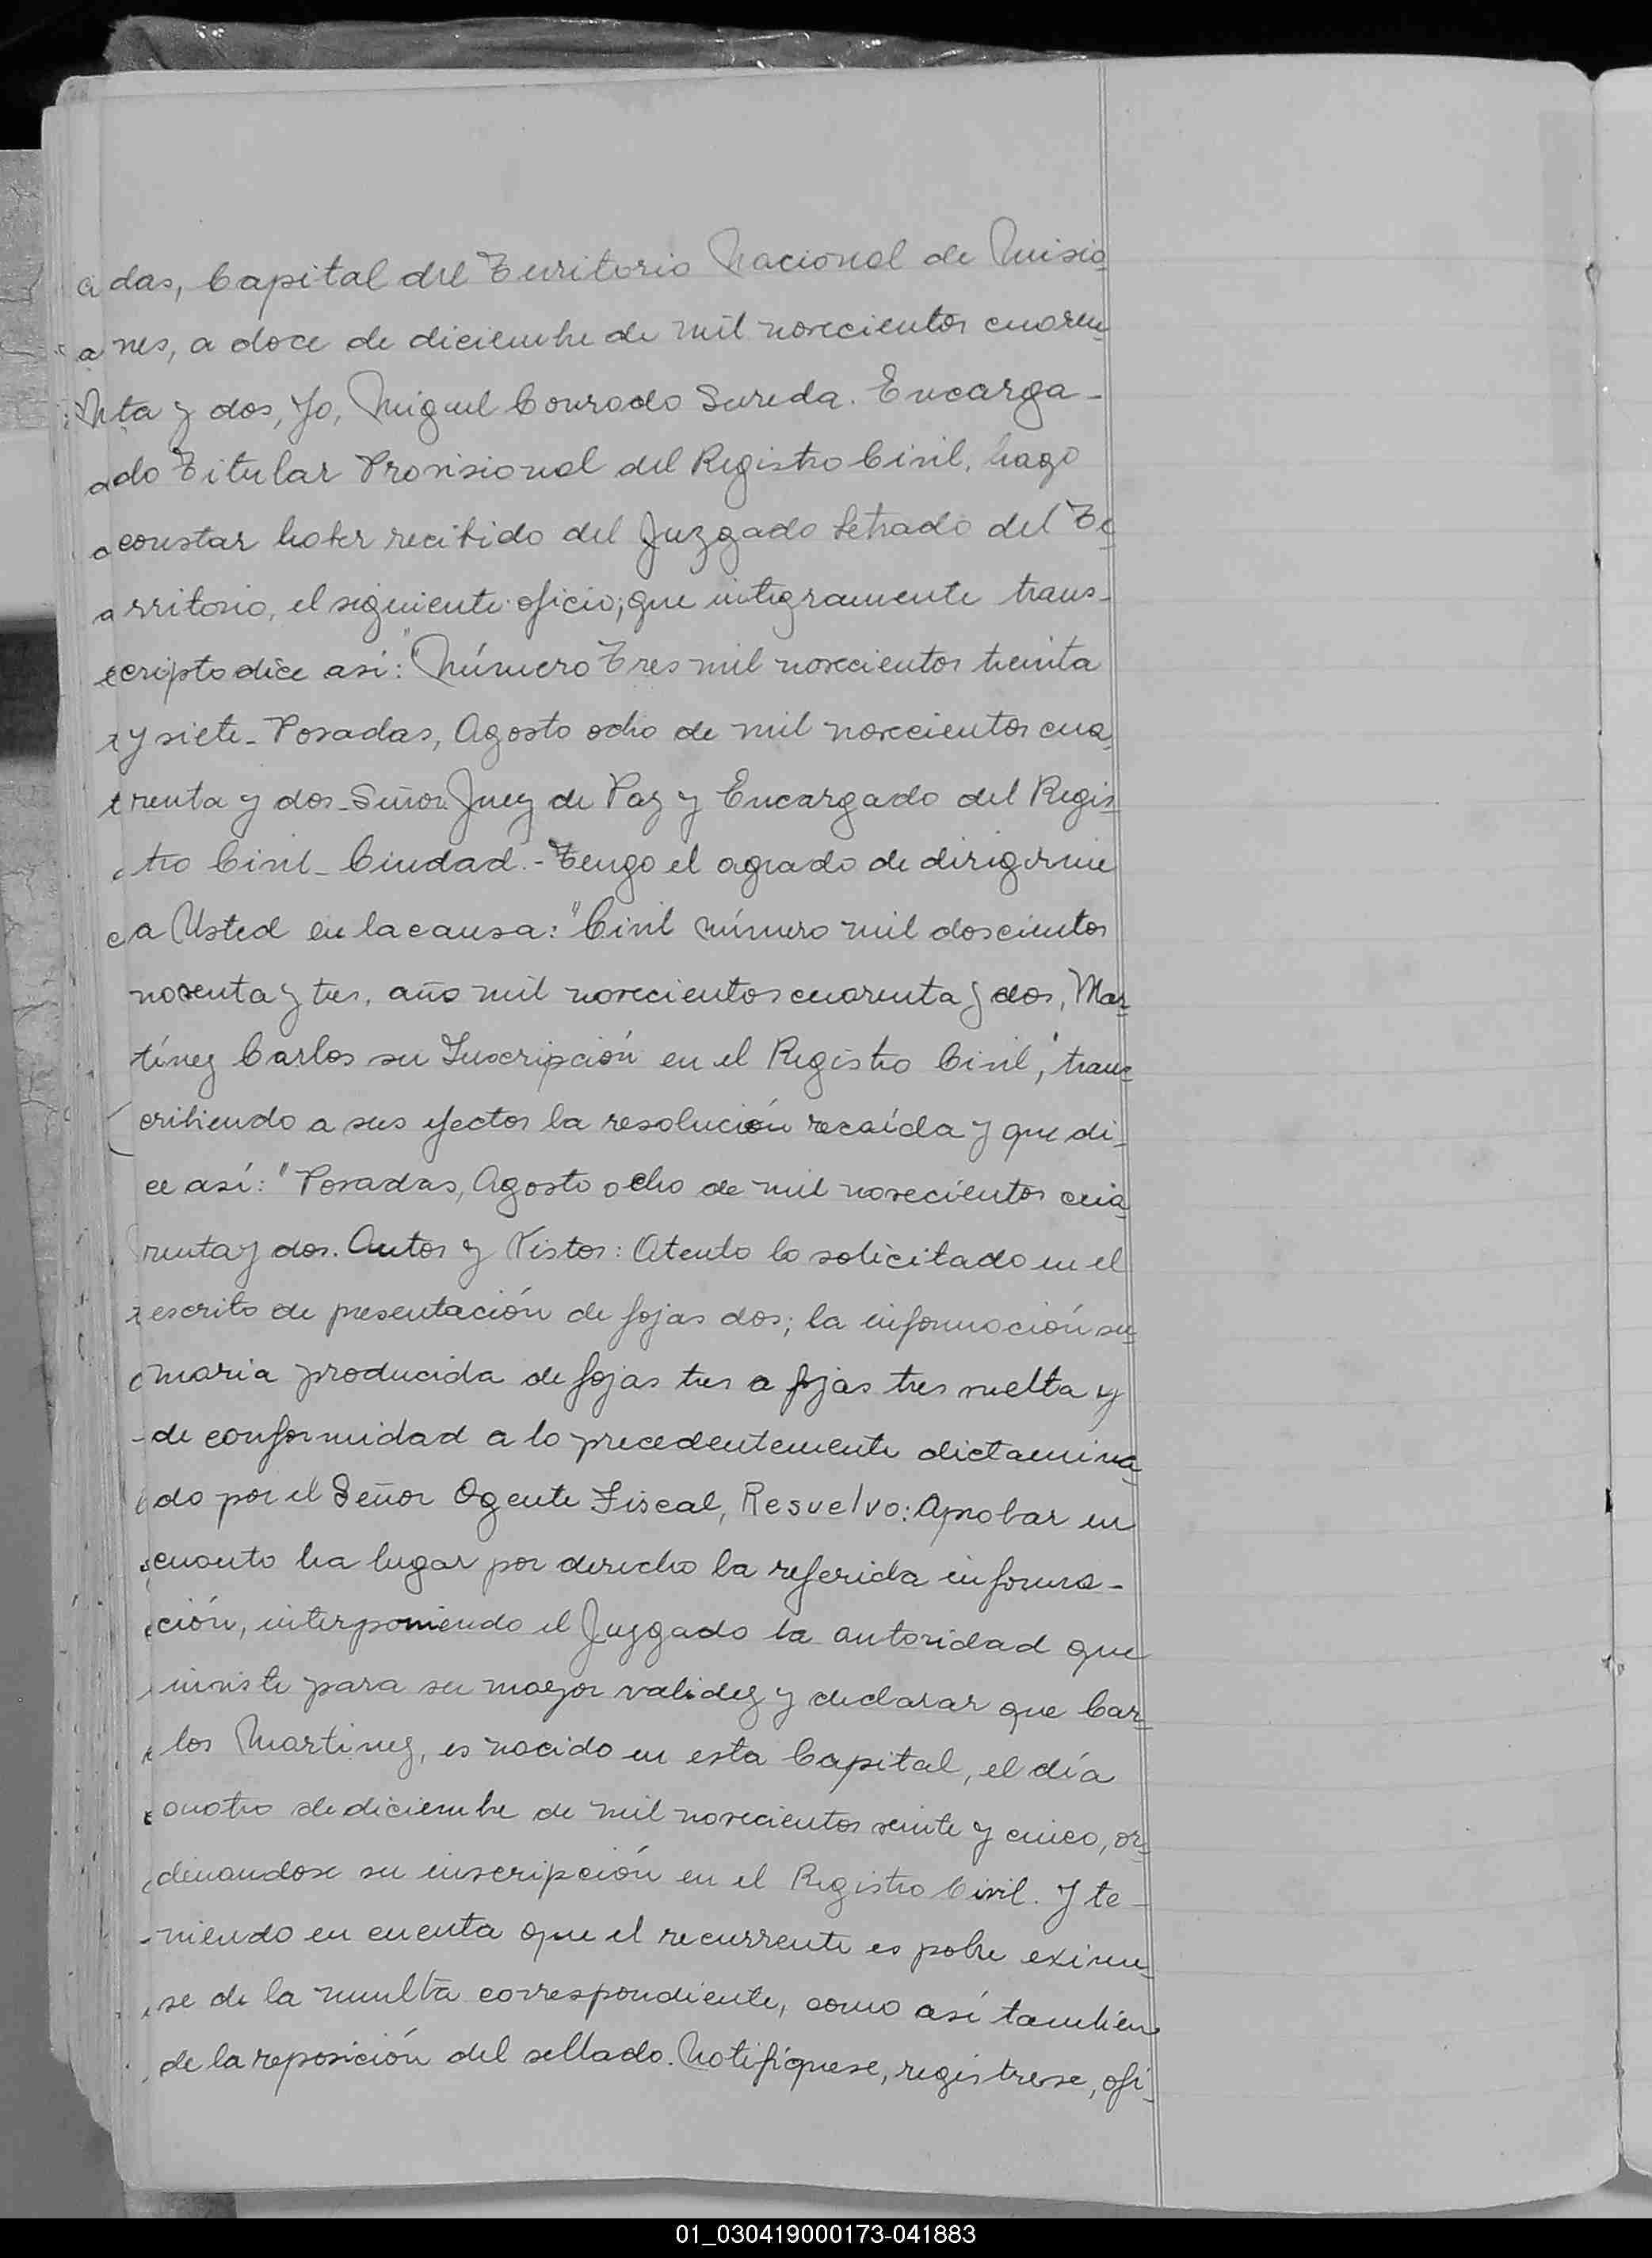 das, Capital del Territorio Nacional de Misio
nes, a doce de diciembre de mil novecientos cuaren
ta y dos, Yo, Miguel Conrado Sureda. Encarga-
do Titular Provisional del Registro Civil, hago
constar haber recibido del Juzgado Letrado del Te
rritorio, el siguiente oficio; que integramente trans-
cripto dice así: "Número Tres mil novecientos treinta
y siete- Posadas, Agosto ocho de mil novecientos cua
renta y dos- Señor Juez de Paz y Encargado del Regis
tro Civil- Ciudad.- Tengo el agrado de dirigirme
a Usted en la causa: "Civil número mil doscientos
noventa y tres, año mil novecientos cuarenta y dos, Mar
tínez Carlos su Inscripción en el Registro Civil", trans
cribiendo a sus efectos la resolución recaída y que di-
ce así: "Posadas, Agosto ocho de mil novecientos cua
renta y dos. Autos y Vistos: Atento lo solicitado en el
escrito de presentación de fojas dos; la información su
maria producida de fojas tres a fojas tres vuelta y
de conformidad a lo precedentemente dictamina
do por el Señor Agente Fiscal, Resuelvo: Aprobar en
cuanto ha lugar por derecho la referida informa-
ción, interponiendo el Juzgado la autoridad que
inviste para su mayor validez y declarar que Car
los Martinez, es nacido en esta Capital, el día
cuatro de diciembre de mil novecientos veinte y cinco, or
denandose su inscripción en el Registro Civil. Y te-
niendo en cuenta que el recurrente es pobre exime
se de la multa correspondiente, como así también
de la reposición del sellado. Notifíquese, regístrese, ofi
01_030419000173-041883